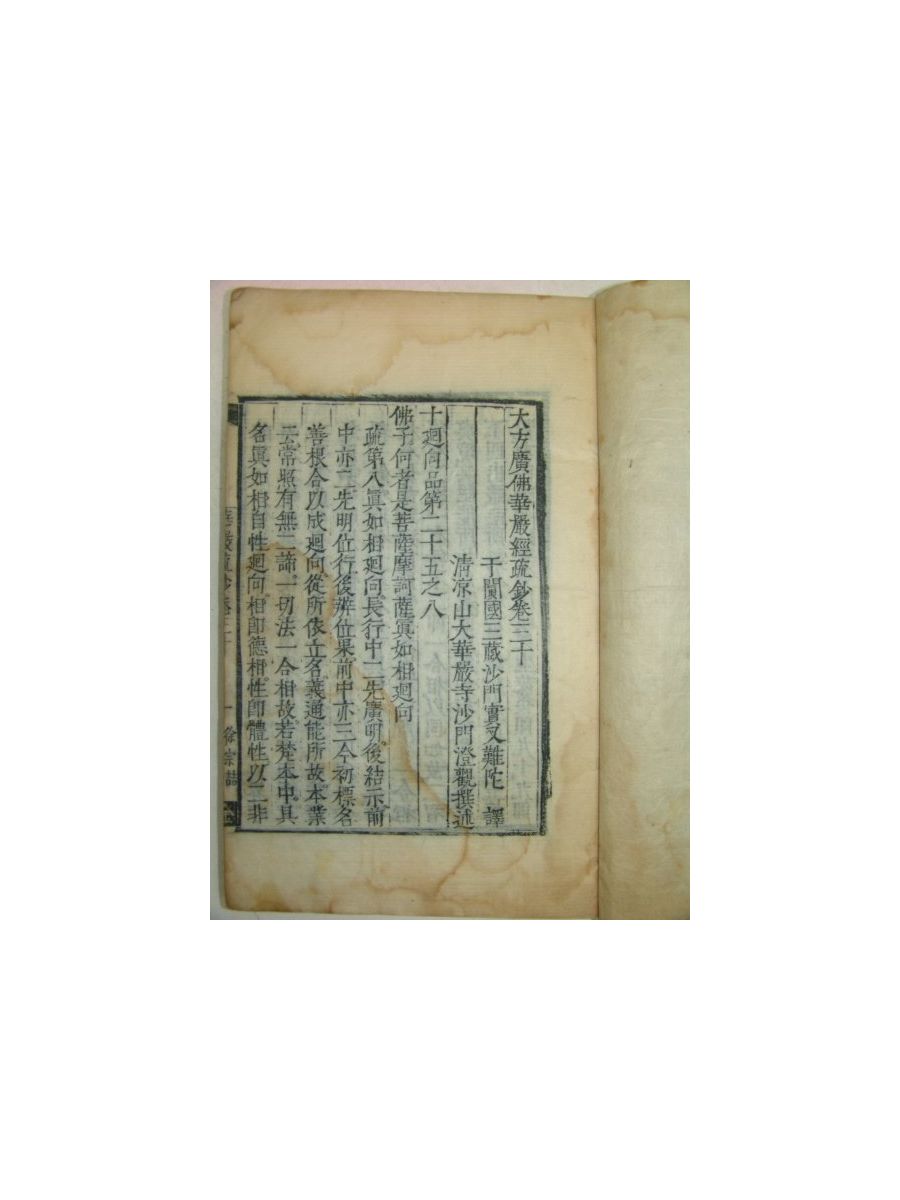 大方廣佛華嚴經疏鈔卷三十
于闐國三藏沙門實叉難陀 譯
清涼山大華嚴寺沙門澄觀撰述
十迴向品第二十五之八
佛子何者是菩薩摩訶薩眞如相迴向
疏第八眞如相迴向。長行中二先廣明。後結示前
中亦二先明位行後辨位果。前中亦三今初標名
善根合以成迴向從所依立名。義通能所故。本業
云。常照有無二諦。一切法一合相故。若梵本中。具
名眞如相自性迴向。相卽德相。性卽體性。以二非